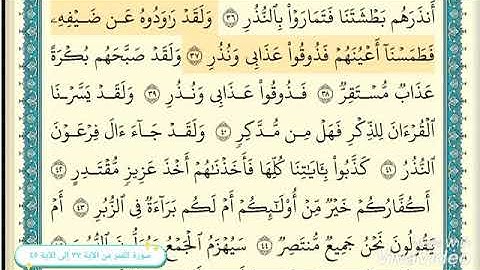 أَنذَرَهُم بَطْشَتَنَا فَتَمَارَوْا۟ بِٱلنُّذُرِ ٣٦ وَلَقَدْ رَٰوَدُوهُ عَن ضَيْفِهِۦ
فَطَمَسْنَآ أَعْيُنَهُمْ فَذُوقُوا۟ عَذَابِى وَنُذُرِ ٣٧ وَلَقَدْ صَبَّحَهُم بُكْرَةً
عَذَابٌ مُّسْتَقِرٌّ ٣٨ فَذُوقُوا۟ عَذَابِى وَنُذُرِ ٣٩ وَلَقَدْ يَسَّرْنَا
ٱلْقُرْءَانَ لِلذِّكْرِ فَهَلْ مِن مُّدَّكِرٍ ٤٠ وَلَقَدْ جَآءَ ءَالَ فِرْعَوْنَ
ٱلنُّذُرُ ٤١ كَذَّبُوا۟ بِـَٔايَٰتِنَا كُلِّهَا فَأَخَذْنَٰهُمْ أَخْذَ عَزِيزٍ مُّقْتَدِرٍ ٤٢
أَكُفَّارُكُمْ خَيْرٌ مِّنْ أُو۟لَٰٓئِكُمْ أَمْ لَكُم بَرَآءَةٌ فِى ٱلزُّبُرِ ٤٣ أَمْ
يَقُولُونَ نَحْنُ جَمِيعٌ مُّنتَصِرٌ ٤٤ سَيُهْزَمُ ٱلْجَمْعُ وَيُوَلُّونَ ٱلدُّبُرَ ٤٥
سورة القمر من الآية ٣٧ إلى الآية ٤٥